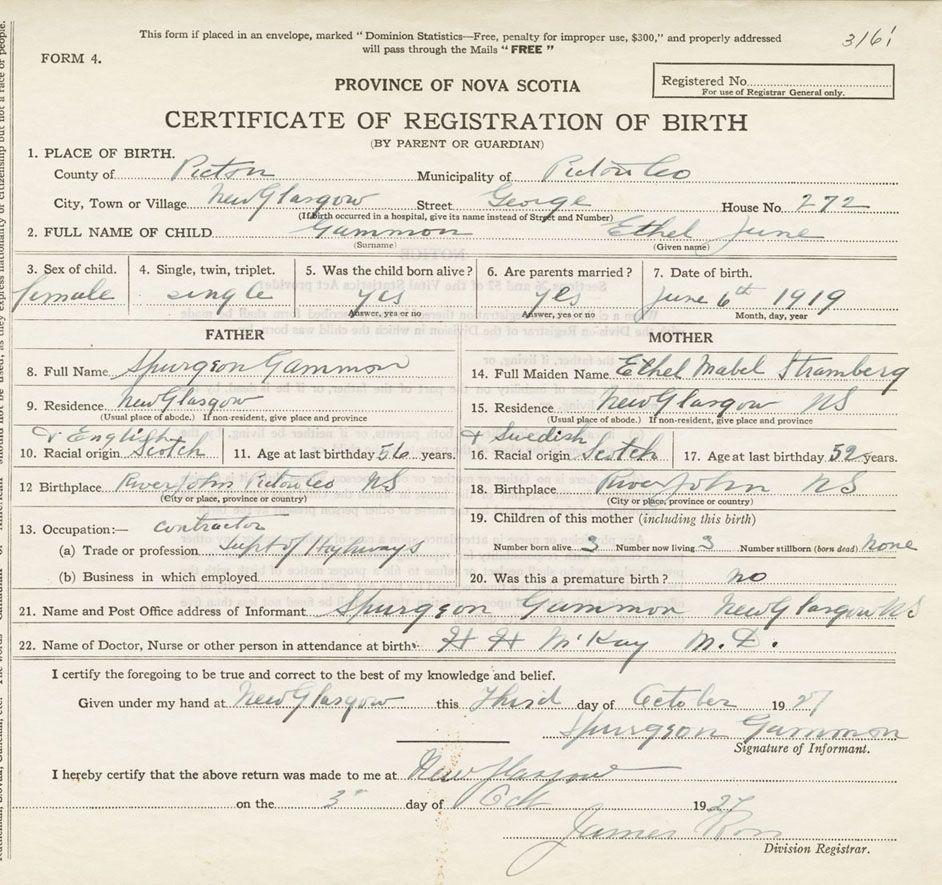 This form if placed in an envelope, marked "Dominion Statistics—Free, penalty for improper use, $300," and properly addressed
will pass through the Mails "FREE"
3161
FORM 4.
PROVINCE OF NOVA SCOTIA
Registered No.
For use of Registrar General only.
CERTIFICATE OF REGISTRATION OF BIRTH
(BY PARENT OR GUARDIAN)
1. PLACE OF BIRTH.
County of Pictou Municipality of Pictou Co
City, Town or Village New Glasgow Street George House No. 272
(If Birth occurred in a hospital, give its name instead of Street and Number)
2. FULL NAME OF CHILD Gammon Ethel June
(Surname) (Given name)
3. Sex of child. 4. Single, twin, triplet. 5. Was the child born alive? 6. Are parents married? 7. Date of birth.
female single yes yes June 6th 1919
Answer, yes or no Answer, yes or no Month, day, year
FATHER MOTHER
8. Full Name Spurgeon Gammon 14. Full Maiden Name Ethel Mabel Stramberg
9. Residence New Glasgow 15. Residence New Glasgow NS
(Usual place of abode.) If non-resident, give place and province (Usual place of abode.) If non-resident, give place and province
& English + Swedish
10. Racial origin Scotch 11. Age at last birthday 56 years. 16. Racial origin Scotch 17. Age at last birthday 52 years.
12 Birthplace River John Pictou Co NS 18. Birthplace River John NS
(City or place, province or country) (City or place, province or country)
13. Occupation:— contractor 19. Children of this mother (including this birth)
(a) Trade or profession Supt of Highways Number born alive 3 Number now living 3 Number stillborn (born dead) None
(b) Business in which employed 20. Was this a premature birth? no
21. Name and Post Office address of Informant Spurgeon Gammon New Glasgow NS
22. Name of Doctor, Nurse or other person in attendance at birth H H McKay M.D.
I certify the foregoing to be true and correct to the best of my knowledge and belief.
Given under my hand at New Glasgow this Third day of October 1927
Spurgeon Gammon
Signature of Informant.
I hereby certify that the above return was made to me at New Glasgow
on the 3rd day of Oct 1927
James Ross
Division Registrar.